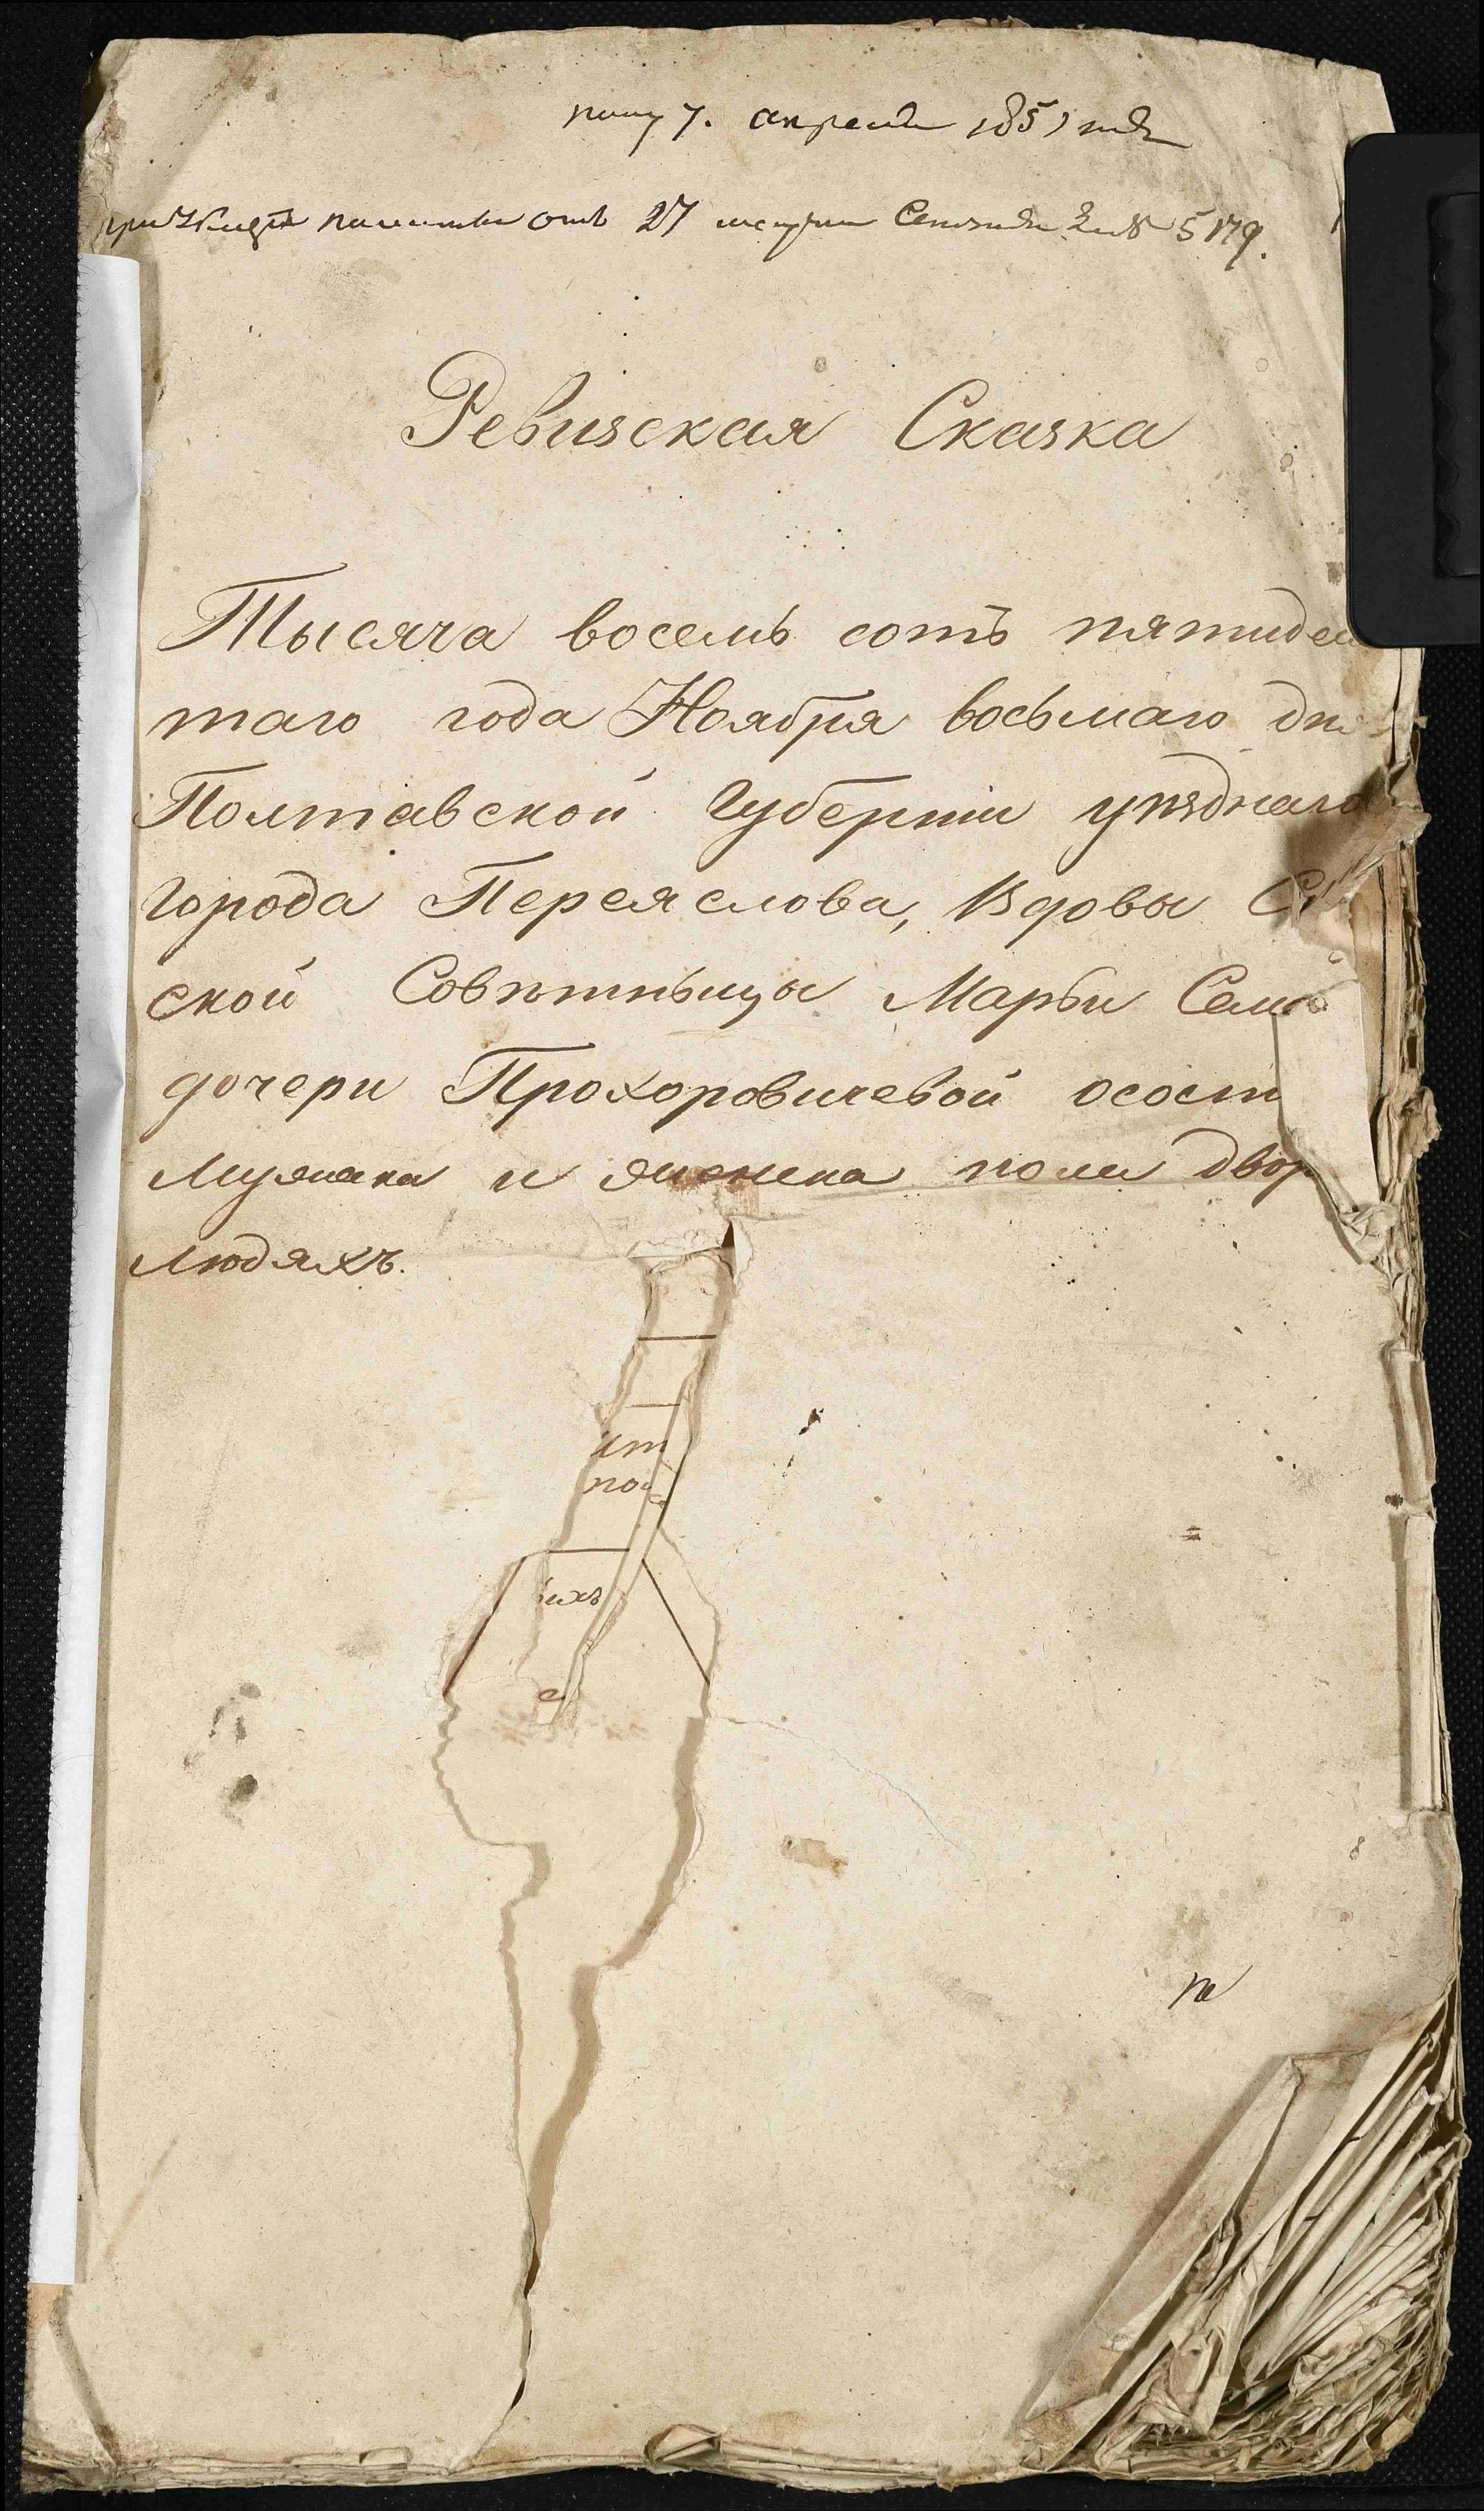 7. апреля 1851 года
отъ 27 Сентября за № 5179.
Ревизская Сказка
Тысяча восемь сотъ пятидеся
таго года Ноября восьмаго дня
Полтавской Губерніи уѣзднаго
города Переяслова, Вдовы Ст
ской Совѣтницы Марьи Семе
дочери Прохоровичевой осост
Мужеска и женска пола двор
людяхъ.
ихъ